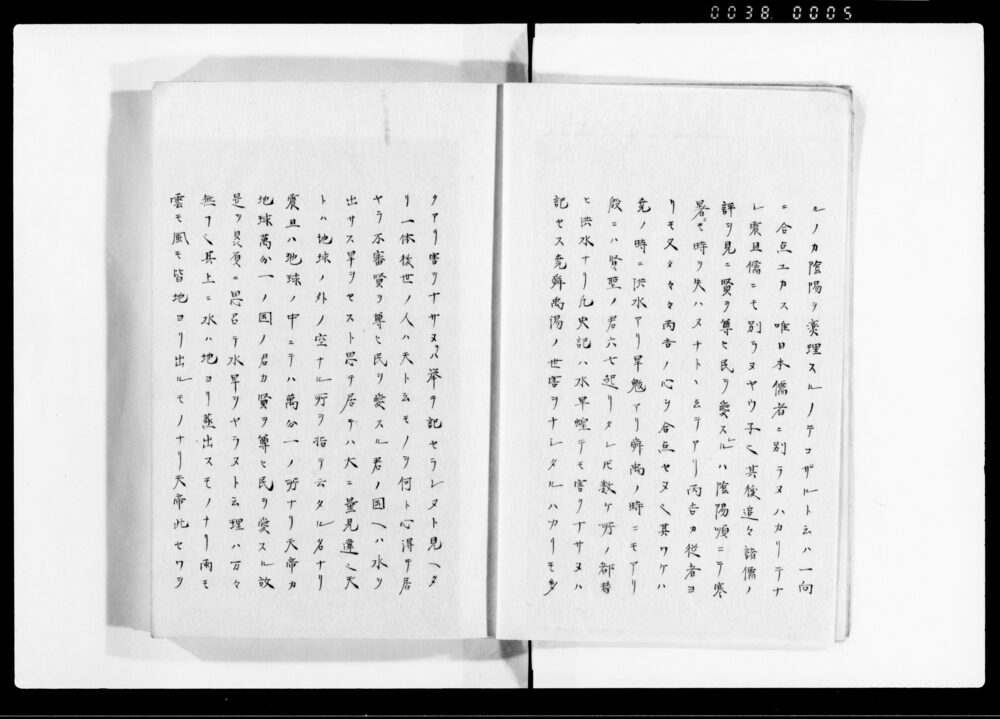 0038 0005
ルノカ陰陽ヲ燮理スルノテコザルト云ハ一向
ニ合点ユカス唯日本儒者ニ別ラヌハカリテナ
シ震旦儒ニモ別ラヌヤウ子〆其後追々諸儒ノ
評ヲ見ニ賢ヲ尊ヒ民ヲ愛スルハ陰陽順ニテ寒
暑モ時ヲ失ハヌナト丶云テアリ丙吉カ従者ヨ
リモ又々々丙吉ノ心ヲ合点セヌ〆其ワケハ
堯ノ時ニ洪水アリ旱魃アリ舜禹ノ時ニモアリ
殷ニハ賢聖ノ君六七起リタレ𪜈数ケ所ノ都替
ヒ洪水ナリ凡史記ハ水旱蝗テモ害ヲナサヌハ
記セス堯舜禹湯ノ世害ヲナシタルハカリモ多
クアリ害ヲナサヌハ挙テ記セラレヌト見ヘタ
リ一体後世ノ人ハ天ト云モノヲ何ト心得テ居
ヤラ不審賢ヲ尊ヒ民ヲ愛スル君ノ国ヘハ水ヲ
出サス旱ヲセスト思テ居ヿハ大ニ量見違〆天
トハ地球ノ外ノ空ナル所ヲ指テ云タル名ナリ
震旦ハ地球ノ中ニテハ萬分一ノ所ナリ天帝カ
地球萬分一ノ国ノ君カ賢ヲ尊ヒ民ヲ愛スル故
是ヲ思召テ水旱ヲヤラヌト云理ハ万々
無ヿ〆其上ニ水ハ地ヨリ蒸出スモノナリ雨モ
雲モ風モ皆地ヨリ出ルモノナリ天帝此セワヲ